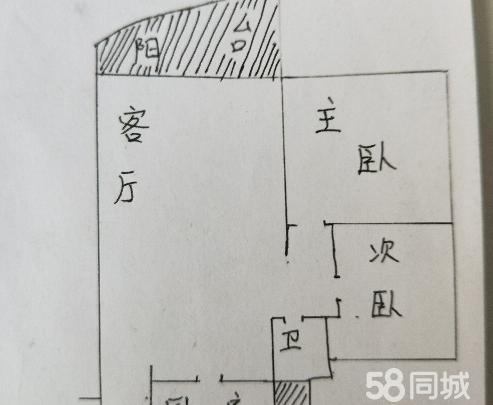 阳台
客厅
主卧
次卧
卫
卧
58同城